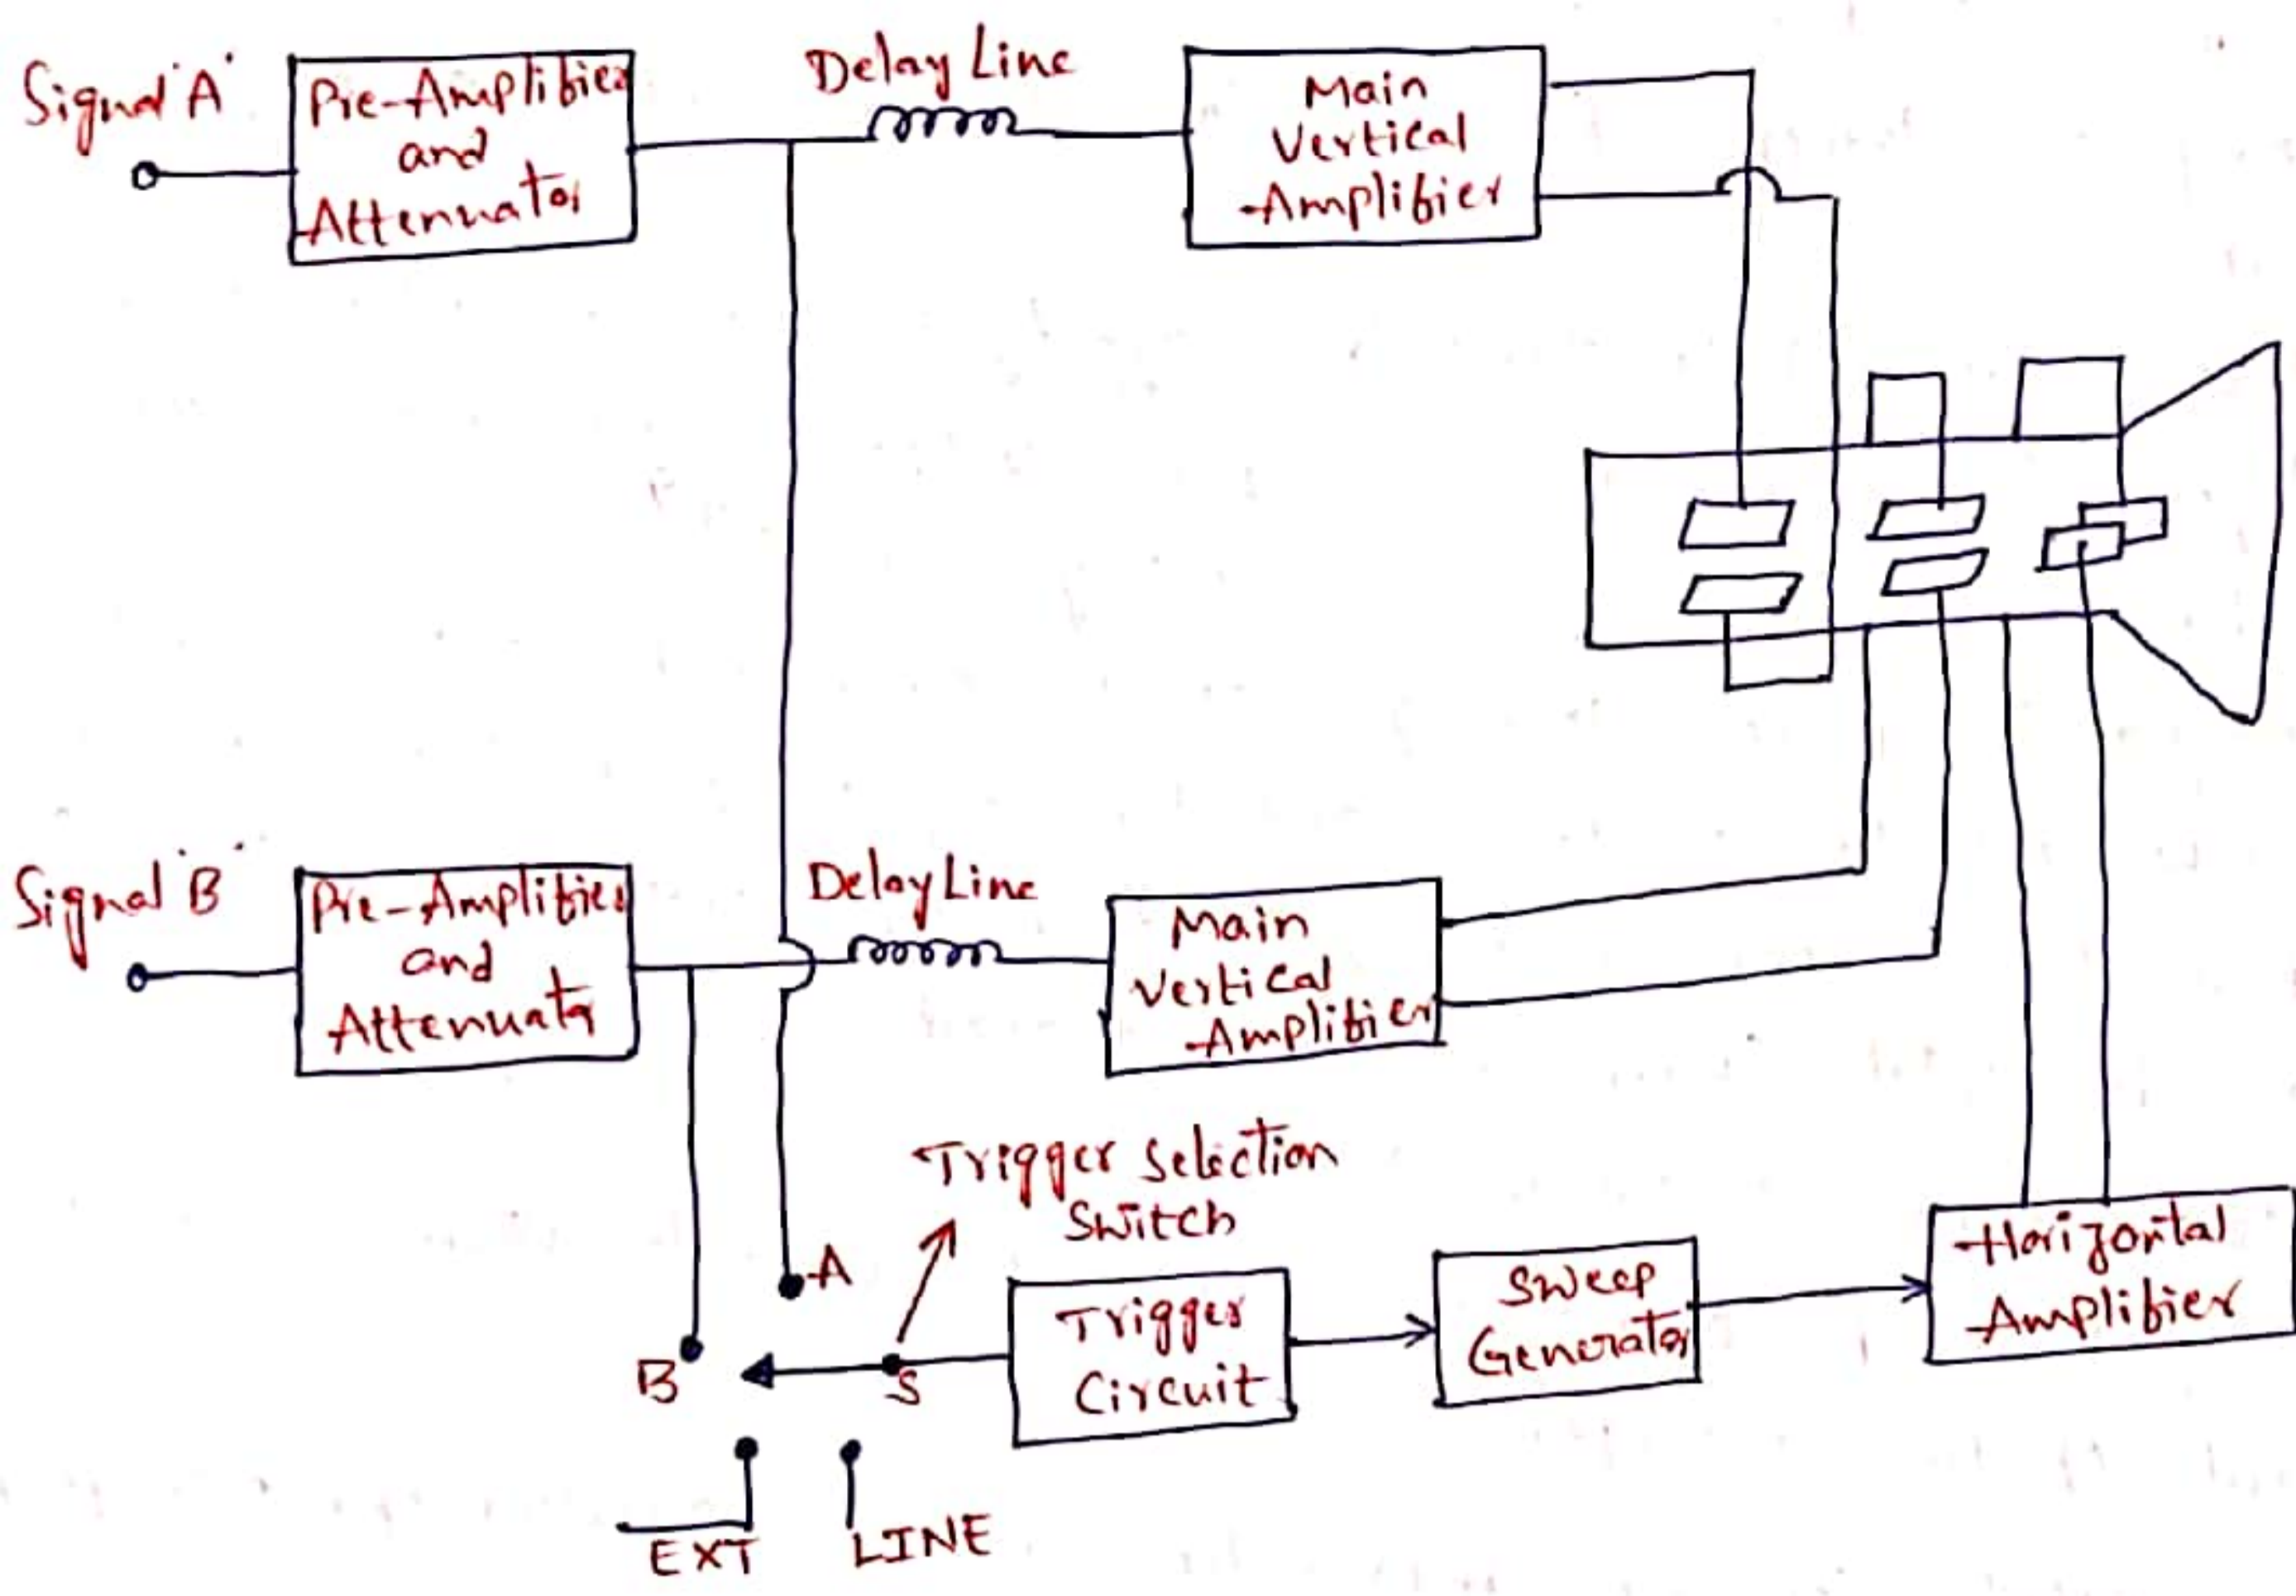 Signal 'A'
Pre-Amplifier
and
Attenuator
Delay Line
Main
Vertical
Amplifier
Signal 'B'
Pre-Amplifier
and
Attenuator
Delay Line
Main
Vertical
Amplifier
Trigger Selection
Switch
A
B
S
Trigger
Circuit
Sweep
Generator
Horizontal
Amplifier
EXT
LINE